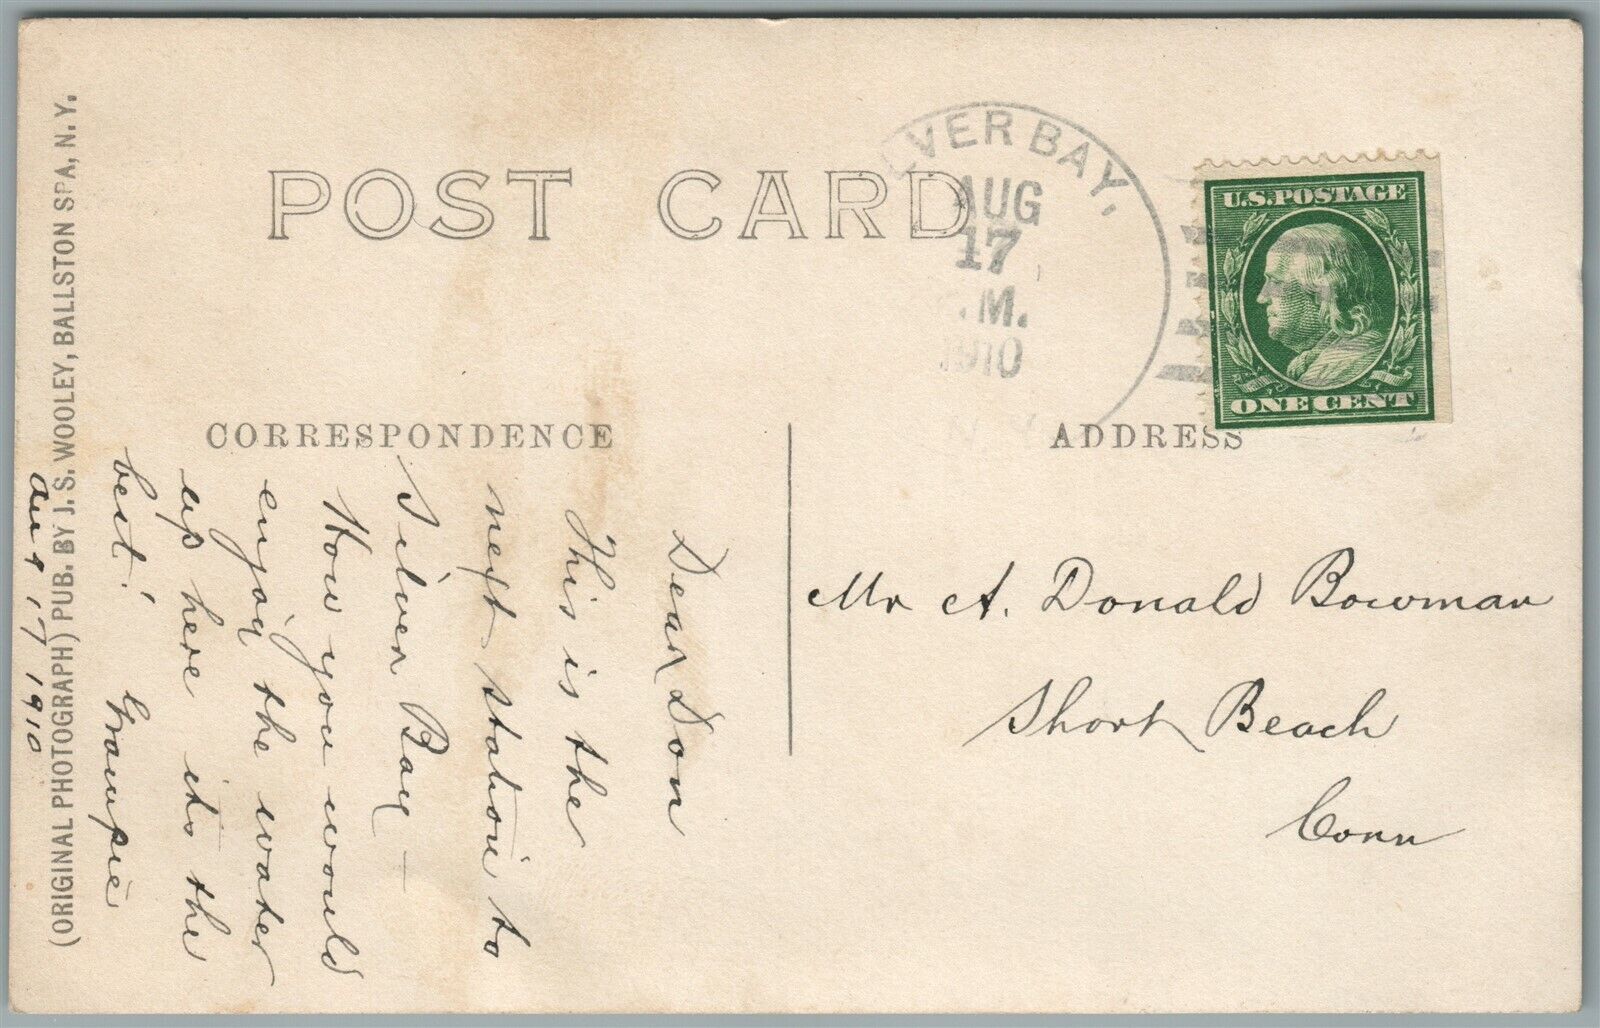 POST CARD
LVER BAY,
AUG
17
M.
1910
U.S. POSTAGE
ONE CENT
CORRESPONDENCE
ADDRESS
Dear Don
This is the
next station to
Silver Bay —
How you would
enjoy the water
up here its the
best! Grampie
Aug 17 1910
(ORIGINAL PHOTOGRAPH) PUB. BY J. S. WOOLEY, BALLSTON SPA, N. Y.
Mr A. Donald Bowman
Short Beach
Conn